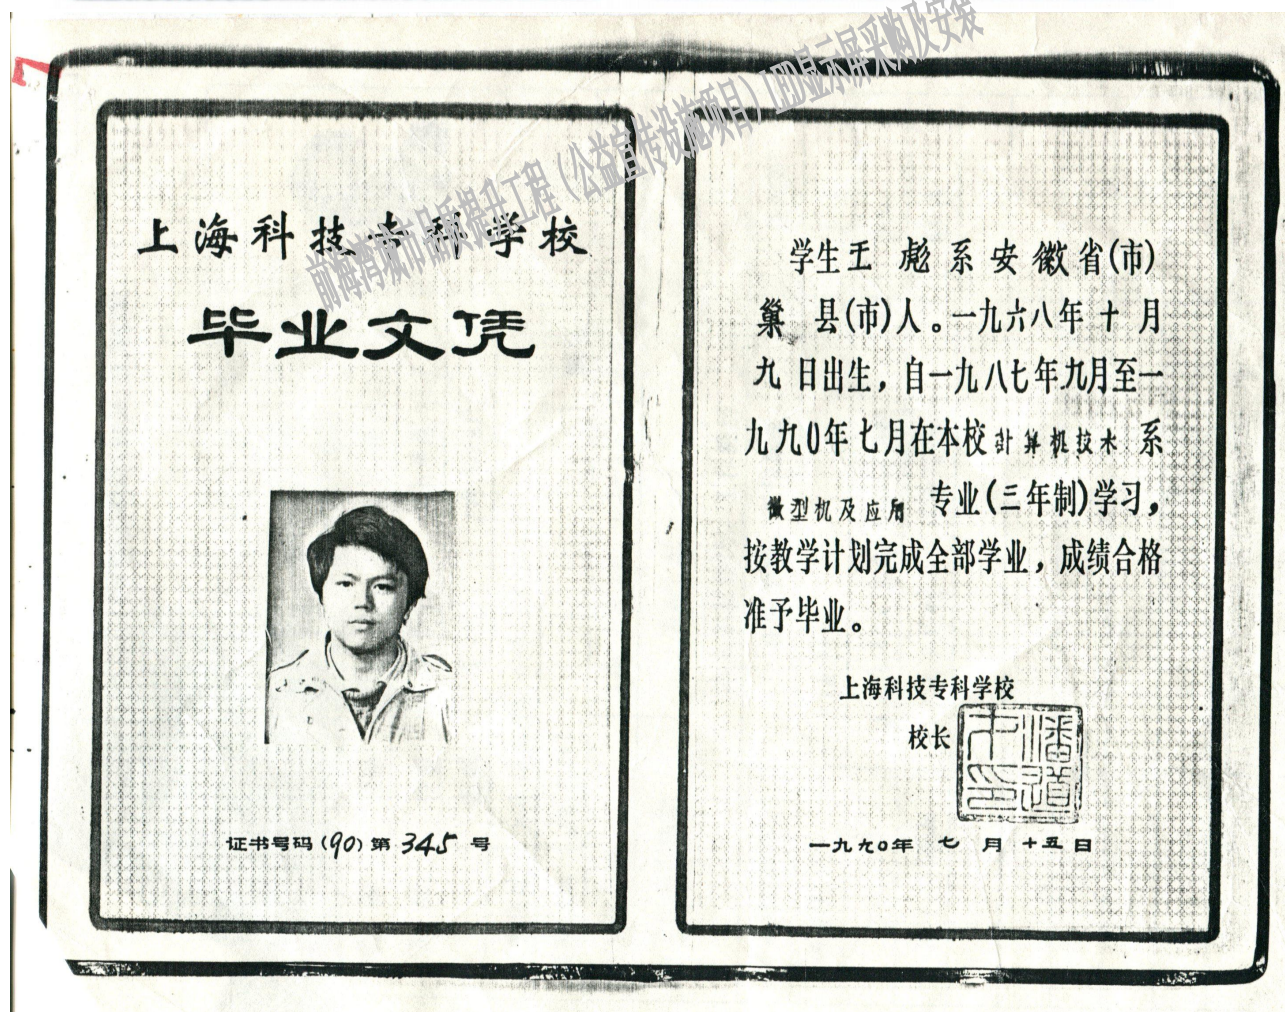 前海湾城市品质提升工程（公益宣传设施项目）LED显示屏采购及安装
上海科技专科学校
毕业文凭
证书号码(90)第345号
学生王 彪系安徽省(市)
巢 县(市)人。一九六八年十月
九日出生，自一九八七年九月至一
九九0年七月在本校计算机技术 系
微型机及应用 专业(三年制)学习，
按教学计划完成全部学业，成绩合格
准予毕业。
上海科技专科学校
校长
一九九0年 七 月 十五日